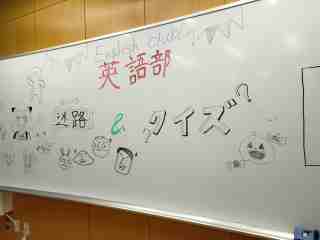 English club
英語部
迷路 & クイズ??